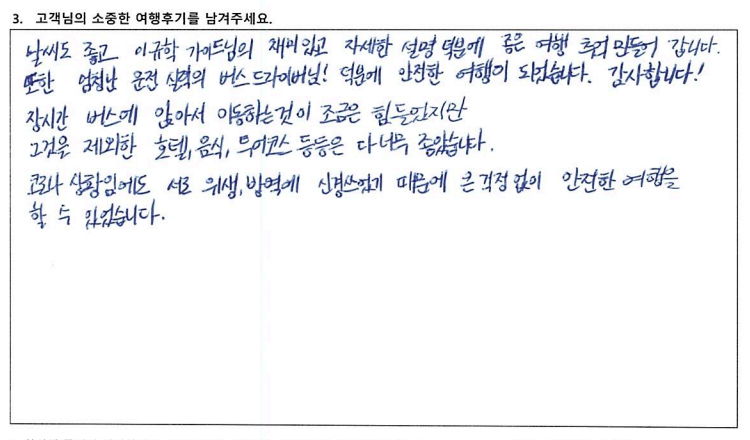 3. 고객님의 소중한 여행후기를 남겨주세요.
날씨도 좋고 이규학 가이드님의 재미있고 자세한 설명 덕분에 좋은 여행 추억 만들어 갑니다.
또한 엄청난 운전 실력의 버스드라이버님! 덕분에 안전한 여행이 되었습니다. 감사합니다!
장시간 버스에 앉아서 이동하는것이 조금은 힘들었지만
그것을 제외한 호텔, 음식, 투어코스 등등은 다 너무 좋았습니다.
코로나 상황임에도 서로 위생, 방역에 신경쓰었기 때문에 큰 걱정 없이 안전한 여행을
할 수 있었습니다.